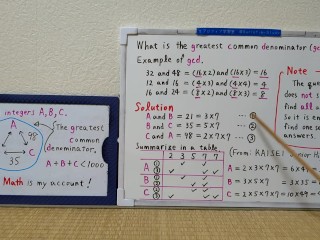 What is the greatest common denominator (gc
Example of gcd.
32 and 48 = (16×2) and (16×3) = 16
12 and 16 = (4×3) and (4×4) = 4
16 and 24 = (8×2) and (8×3) = 8
Solution
A and B = 21 = 3×7 … ①
B and C = 35 = 5×7 … ②
A and C = 98 = 2×7×7 … ③
Summarize in a table.
2 3 5 7 7
A ①
③
B ①
②
C ②
③
(From: KAISEI
A = 2×3×7×7
B = 3×5×7
C = 2×5×7×7
Note
The que
does not s
find all
So it is en
find one
answers.
integers A, B, C.
A
98
C
35
The greatest
common
denominator.
A+B+C<1000
Math is my account!